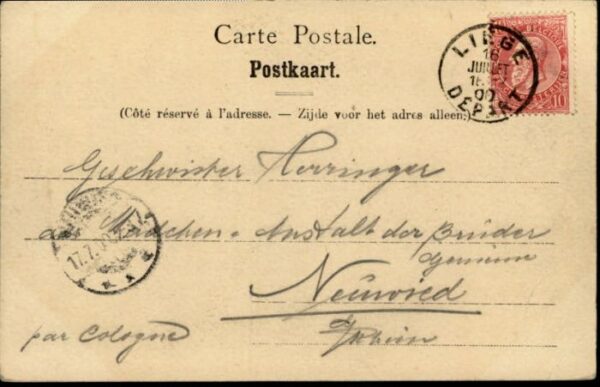 Carte Postale.
Postkaart.
(Côté réservé à l'adresse. — Zijde voor het adres alleen.)
LIEGE
16
JUILLET
00
DEPART
10
Geschwister Herringer
Mädchen-Anstalt der Brüder
gemeine
Neuwied
17.7.
par Cologne
Rhein